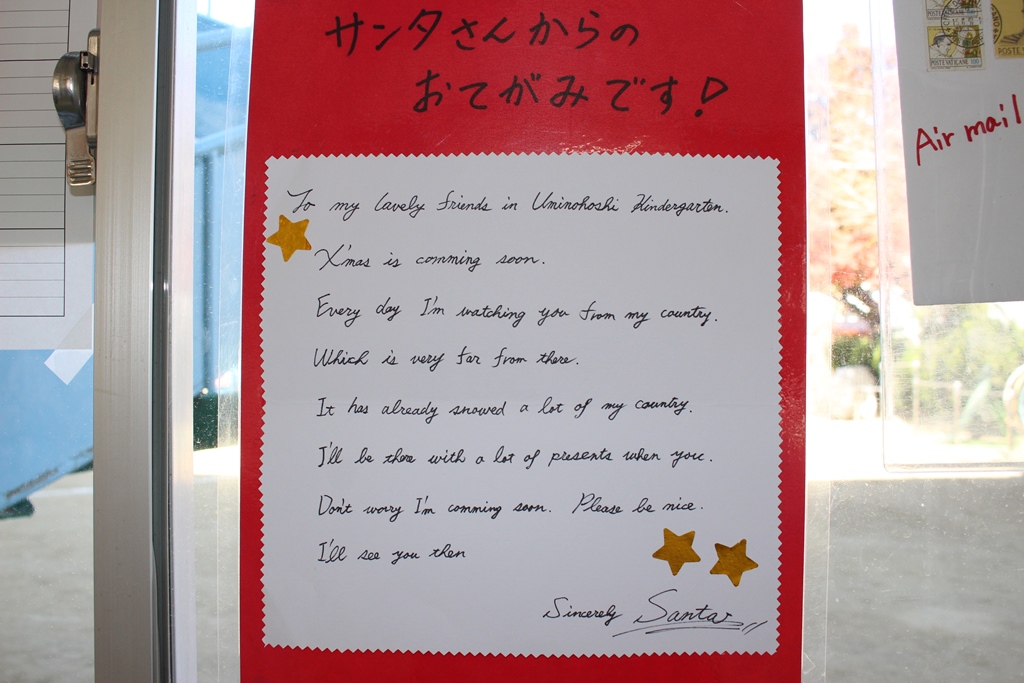 サンタさんからの
おてがみです!
To my lavely friends in Uminohoshi Kindergarten.
X'mas is comming soon.
Every day I'm watching you from my country.
Which is very far from there.
It has already snowed a lot of my country.
I'll be there with a lot of presents when you.
Don't worry I'm comming soon. Please be nice.
I'll see you then
Sincerely Santa
Air mail